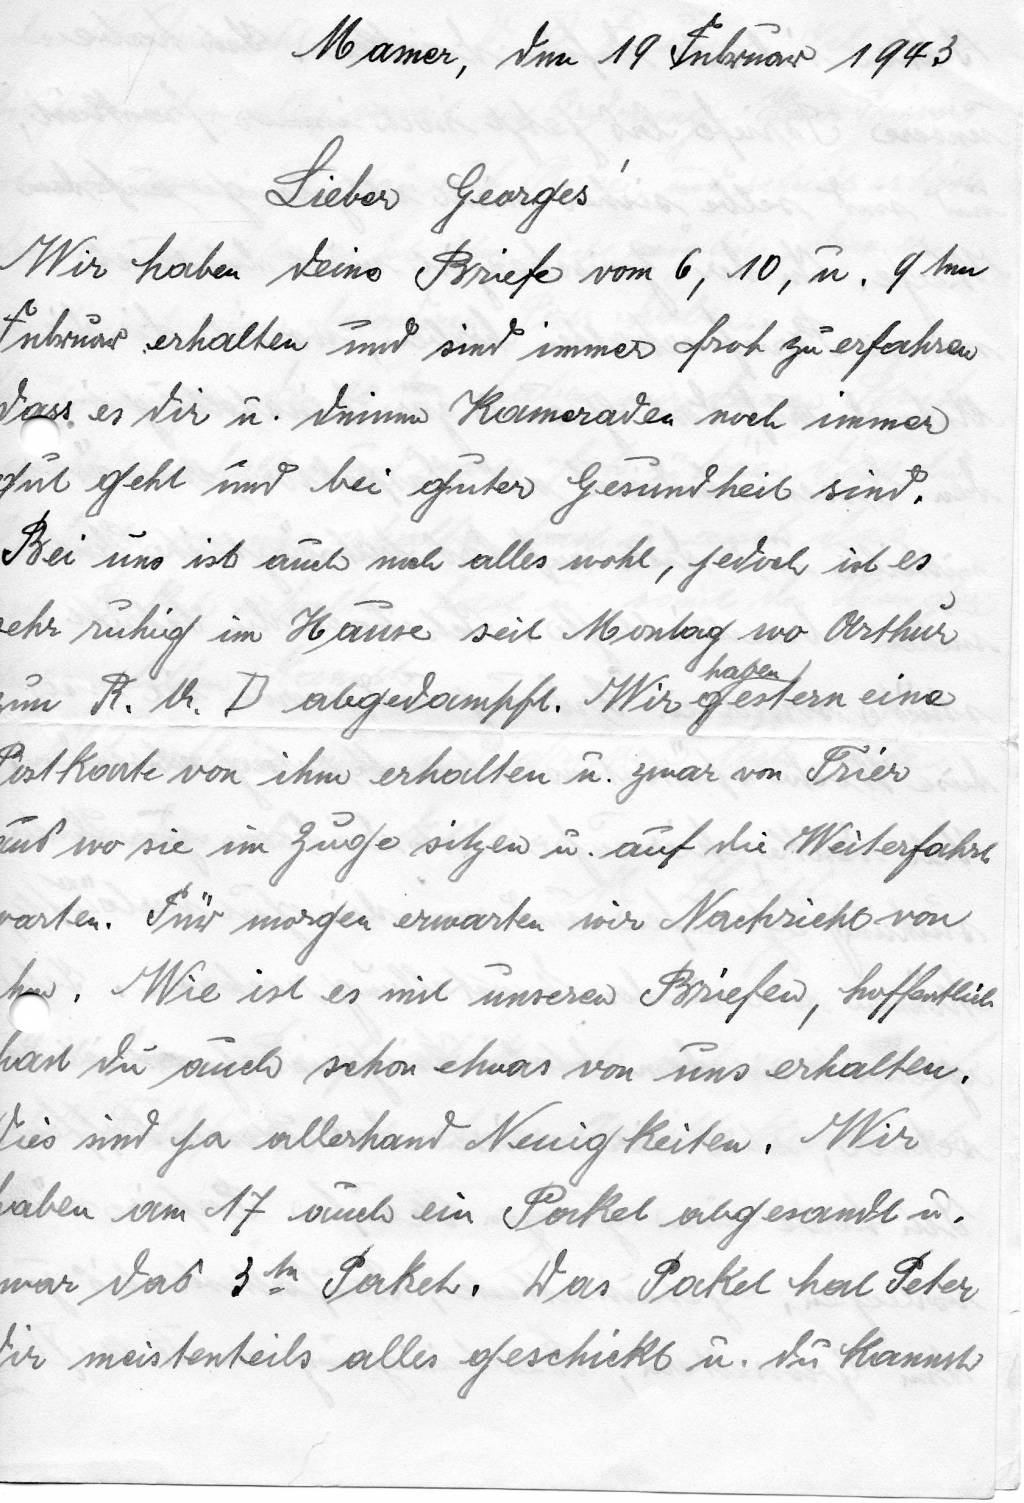 Mamer, den 19 Februar 1943
Lieber Georges!
Wir haben deine Briefe vom 6, 10, u. 9ten
Februar erhalten und sind immer froh zu erfahren
dass es dir u. deinen Kameraden noch immer
gut geht und bei guter Gesundheit sind.
Bei uns ist auch noch alles wohl, jedoch ist es
sehr ruhig im Hause seit Montag wo Arthur
zum R. A. D abgedampft. Wir haben gestern eine
Postkarte von ihm erhalten u. zwar von Trier
aus wo sie im Zuge sitzen u. auf die Weiterfahrt
warten. Für morgen erwarten wir Nachricht von
ihm. Wie ist es mit unseren Briefen, hoffentlich
hast du auch schon etwas von uns erhalten.
Dies sind ja allerhand Neuigkeiten. Wir
haben am 17 auch ein Paket abgesandt u.
zwar das 3te Paket. Das Paket hat Peter
dir meistenteils alles geschickt u. du kannst